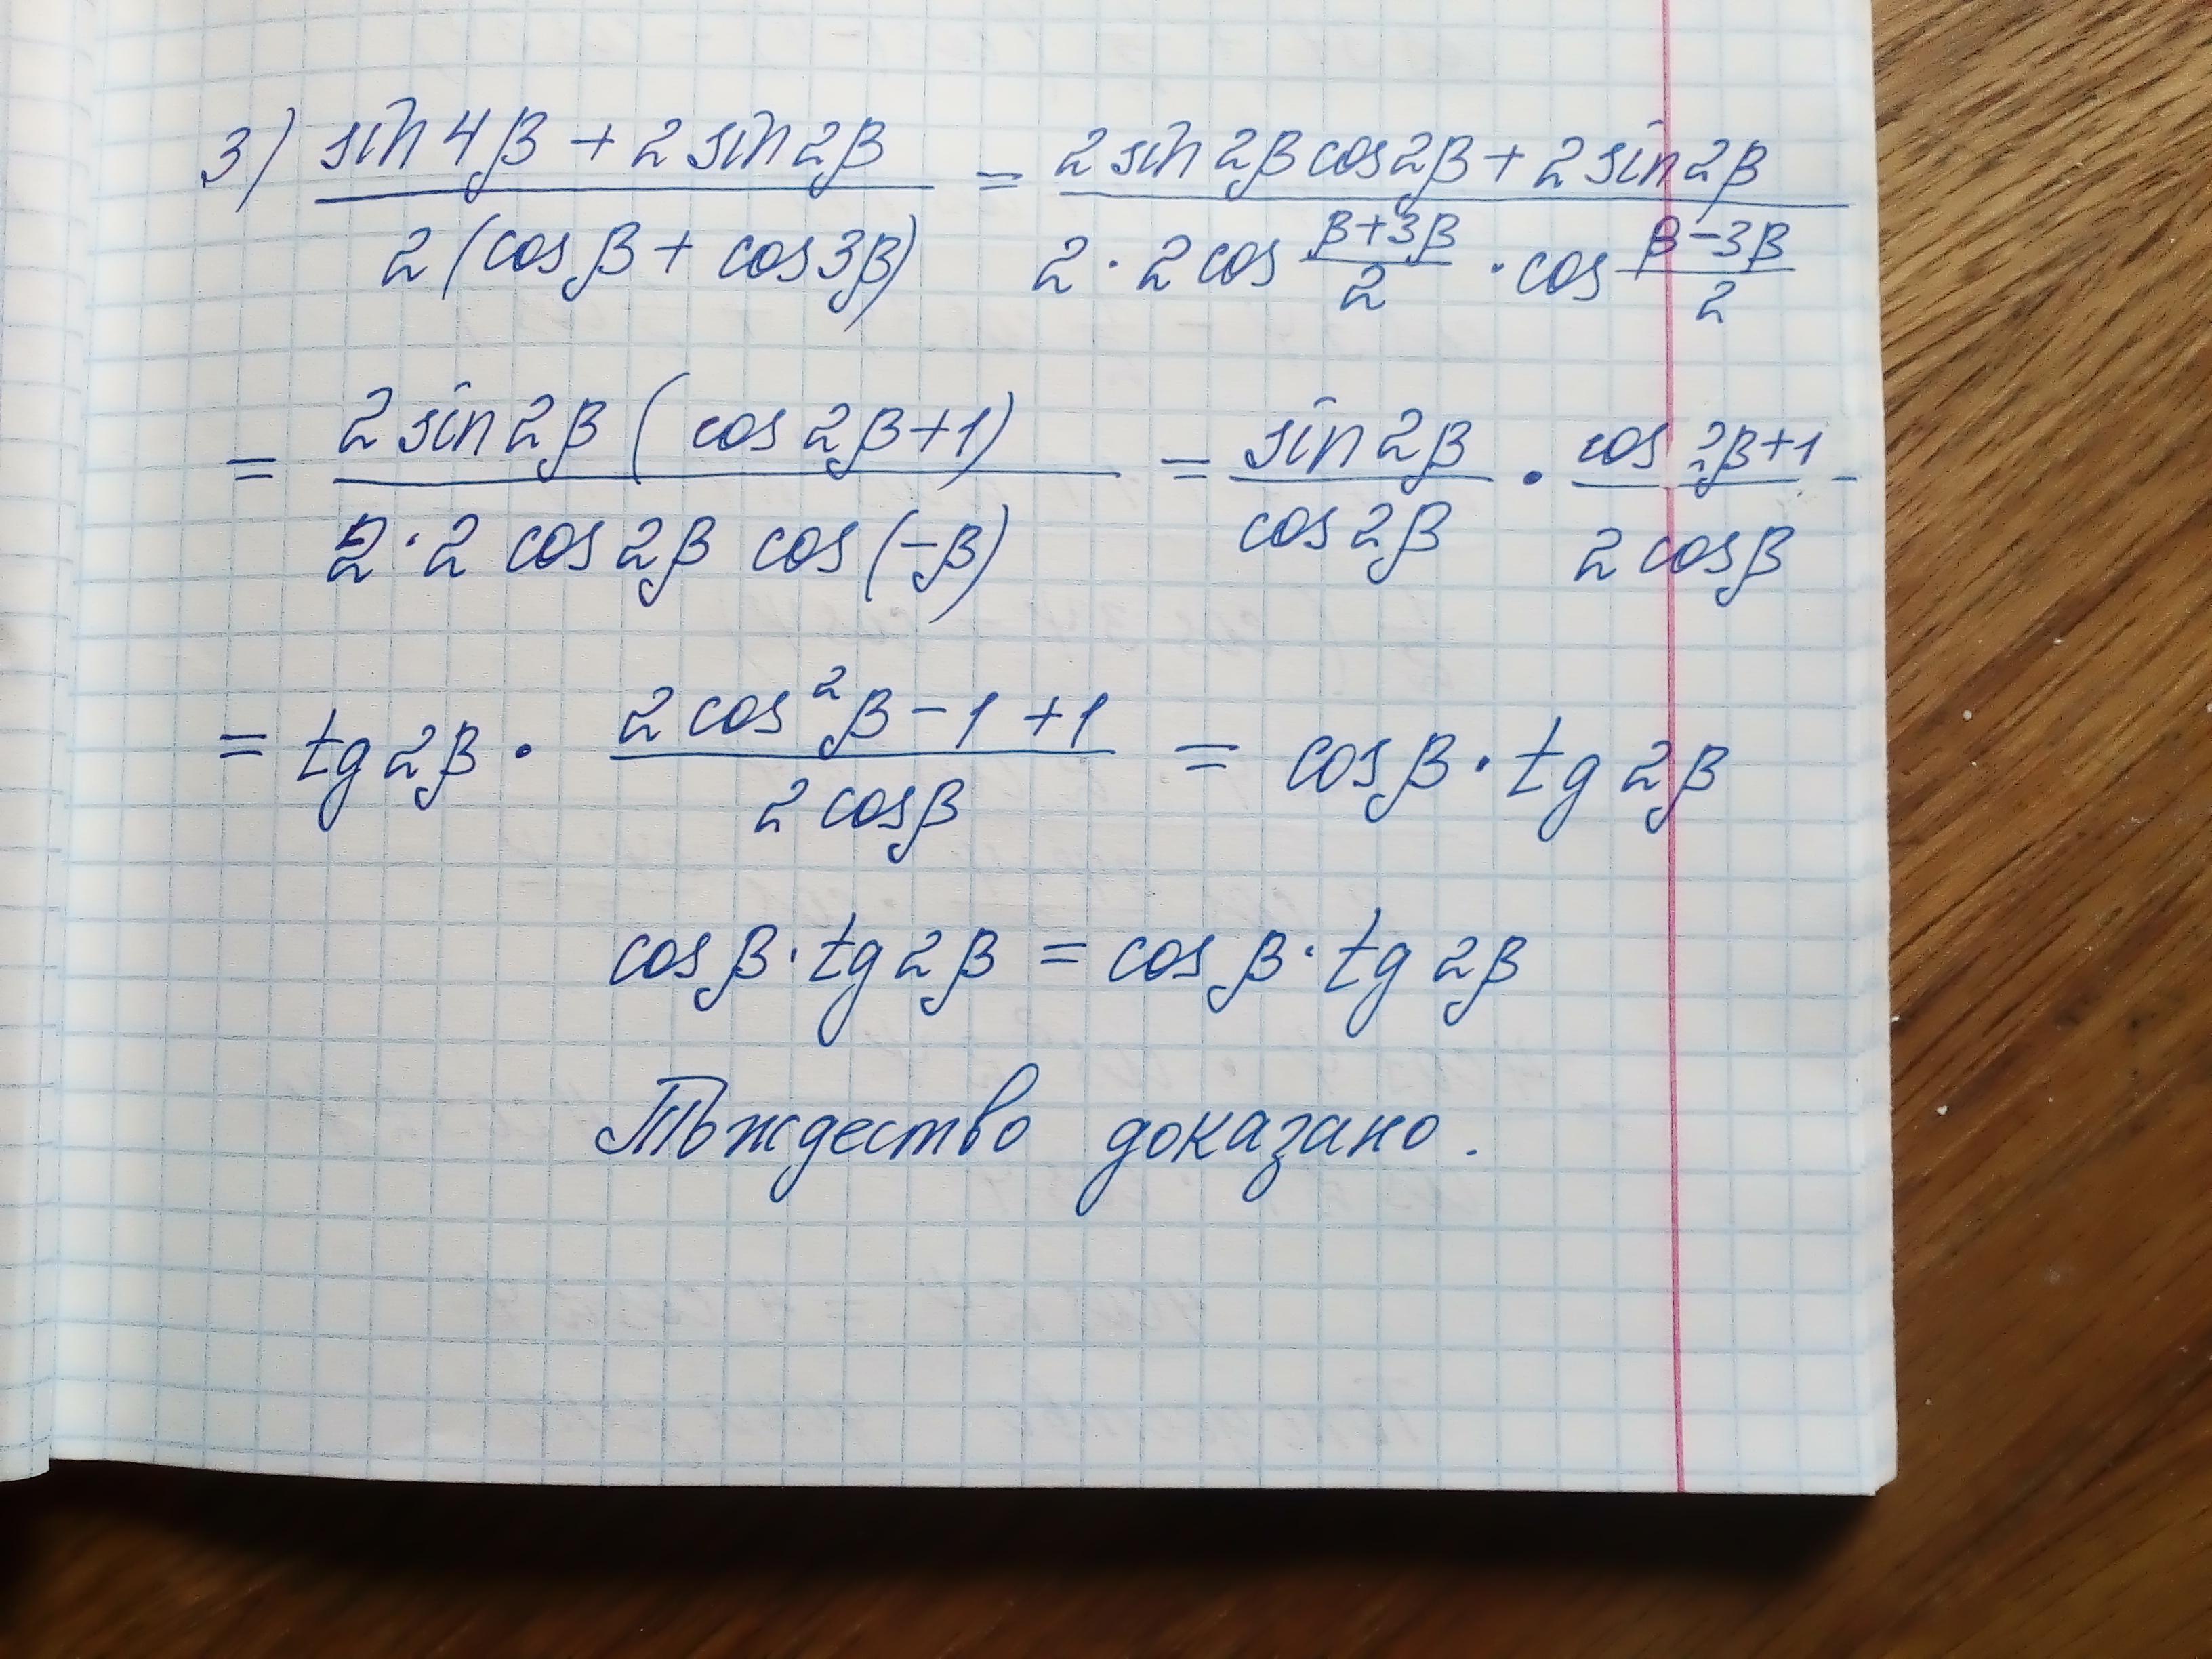 3) \frac{sin 4β + 2 sin 2β}{2 (cos β + cos 3β)} = \frac{2 sin 2β cos 2β + 2 sin 2β}{2 · 2 cos \frac{β+3β}{2} · cos \frac{β-3β}{2}}
= \frac{2 sin 2β (cos 2β + 1)}{2 · 2 cos 2β cos (-β)} = \frac{sin 2β}{cos 2β} · \frac{cos 2β + 1}{2 cos β} -
= tg 2β · \frac{2 cos² β - 1 + 1}{2 cos β} = cos β · tg 2β
cos β · tg 2β = cos β · tg 2β
Тъждество доказано.